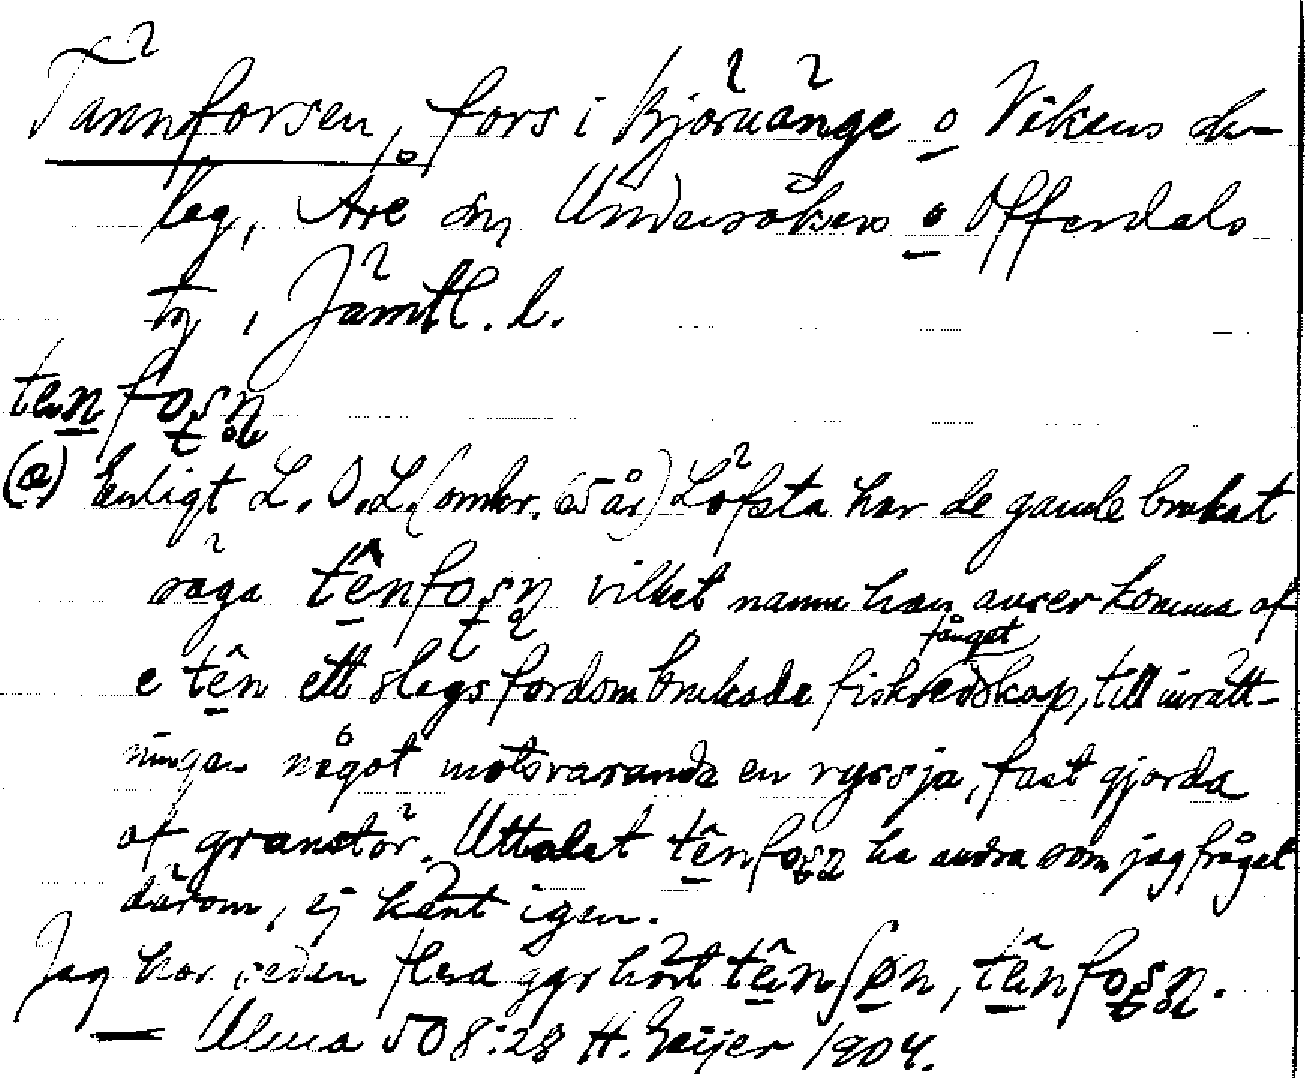 Tännforsen, fors i Björnänge o Vikens sk-
lag, Åre sn, Undersåkers o Offerdals
tg, Jämtl. l.
tenfoșṇ
(a) Enligt L. O. L. (omkr. 65 år) Löfsta har de gamle brukat
säga tênfoșṇ vilket namn han anser komma af
e tên ett slags fordom brukade fiskredskap, till inrätt-
fånget
ningen något motsvarande en ryssja, fast gjorda
af granstör. Uttalet tênfoșṇ ha andra som jag frågat
därom, ej känt igen.
Jag har sedan flera ggr hört tênſøn, tênfoșṇ.
— Ulma 508:28 H. Geijer 1904.